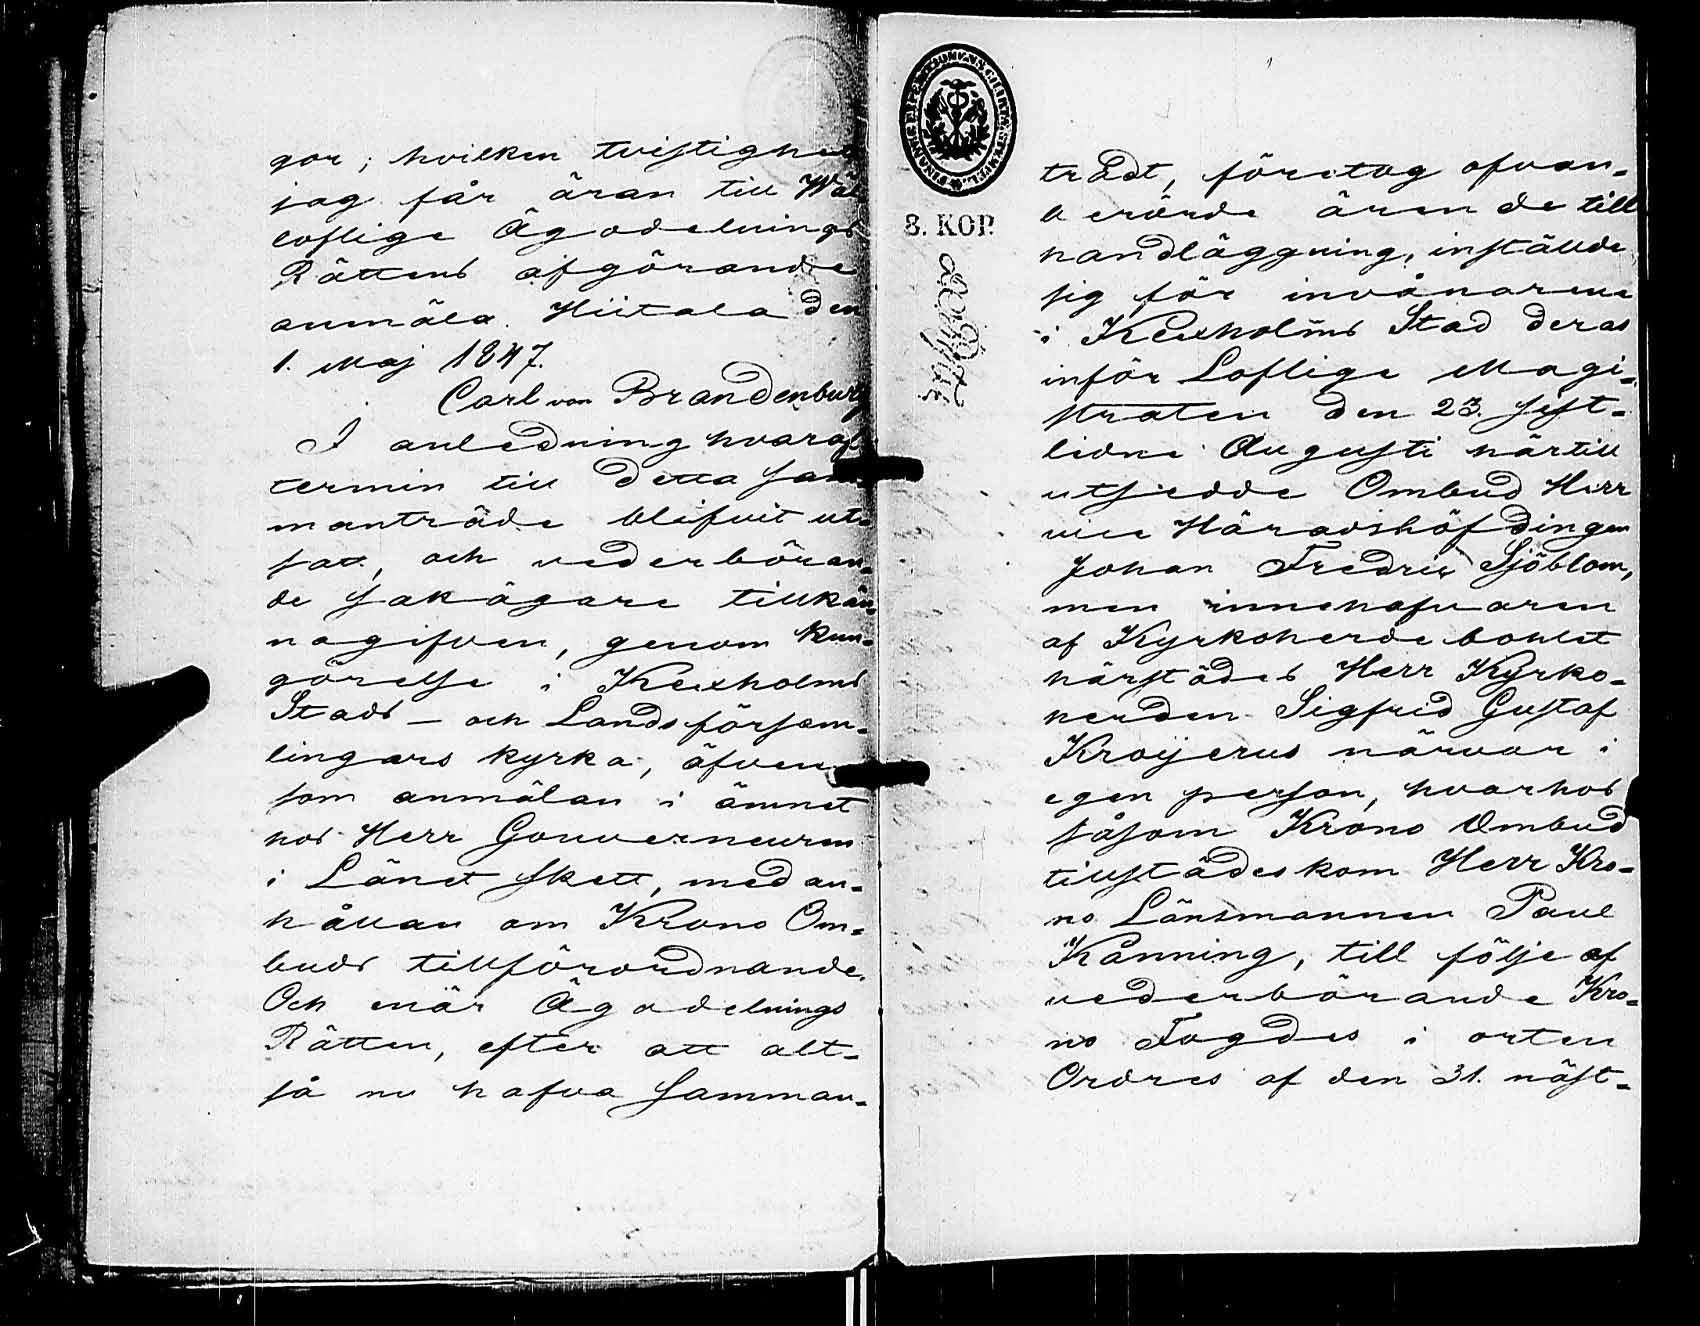 gor; hvilken tvistighet
jag får äran till Wäl
loflige Ägodelnings
Rättens afgörande
anmäla. Hiitala den
1. Maj 1847.
Carl von Brandenburg
I anledning hvaraf
termin till detta sam-
manträde blifvit ut-
satt, och vederböran-
de sakägare tillkän-
nagifven, genom kun-
görelse i Kexholms
Stads- och Landsförsam-
lingars kyrka, äfven
som anmälan i ämnet
hos Herr Gouverneuren
i Länet skett, med an-
hållan om Krono Om-
buds tillförordnande.
Och enär Ägodelnings
Rätten, efter att alt-
så nu hafva samman-
trädt, företog ofvan-
berörde ärende till
handläggning, instälde
sig för invånarene
i Kexholms Stad deras
inför Loflige Magi-
straten den 23. sist-
lidne Augusti härtill
utsedde Ombud Herr
vice Häradshöfdingen
Johan Fredric Sjöblom,
men innehafvaren
af Kyrkoherde bohlet
härstädes Herr Kyrko-
herden Sigfrid Gustaf
Kroÿerus närvar i
egen person, hvarhos
såsom Krono Ombud
tillstädeskom Herr Kro-
no Länsmannen Paul
Känning, till följe af
vederbörande Kro-
no Fogdes i orten
Ordres af den 31. näst-
8. KOP.